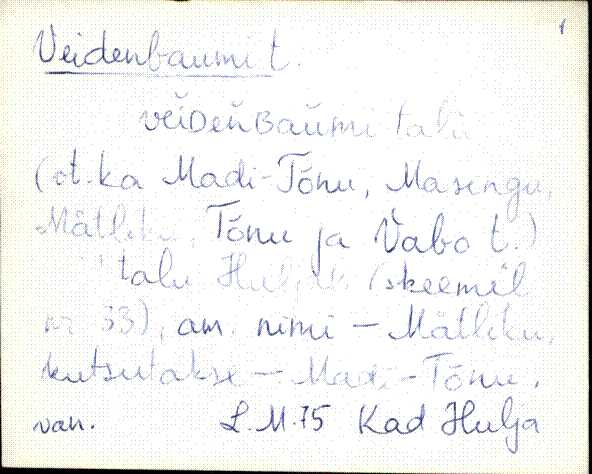 1
Veidenbaumi t.
vĕiDeňBaŭmi talu
(vt. ka Madi-Tõnu, Masingu,
Mätliku, Tõnu ja Vabo t.)
talu Huljak (skeemil
nr 33), am. nimi - Mätliku,
kutsutakse - Madi-Tõnu.
van. L.M.75 Kad Hulja